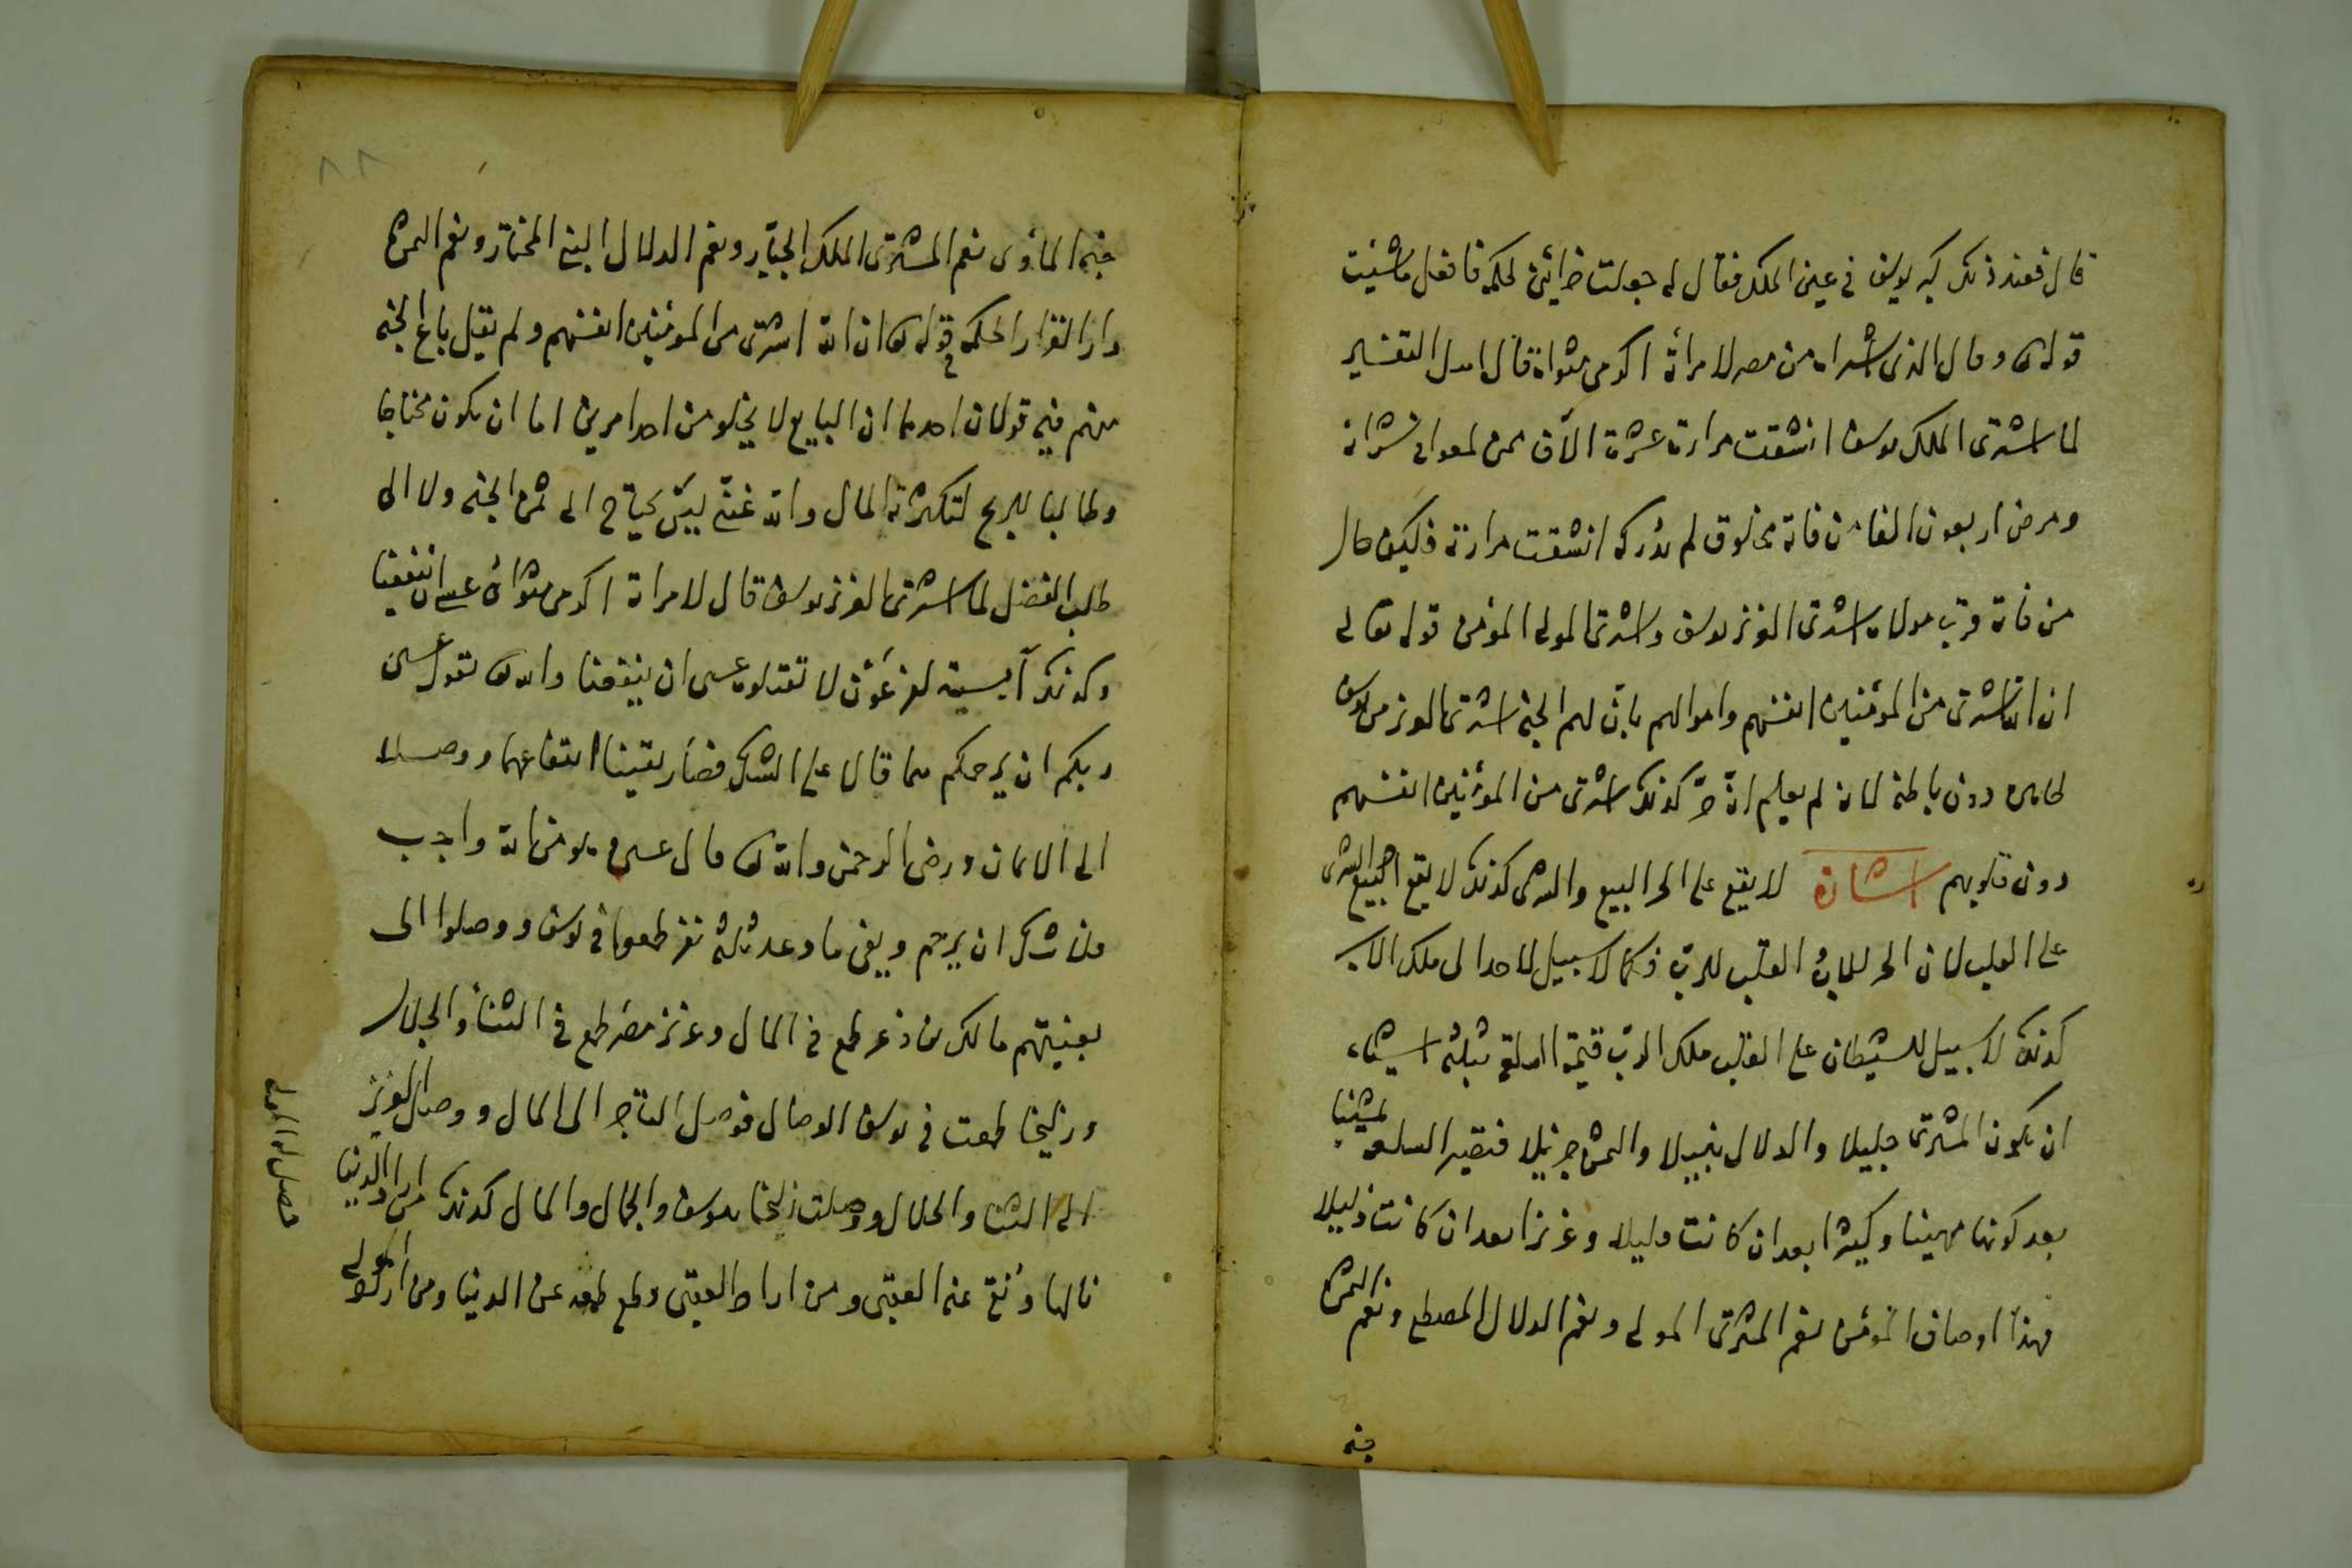 قال فعند ذلك كبر يوسف في عين الملك فقال له جعلت خزائني لحكم فافعل ماشئت
قوله تعالى وقال الذي اشتراه من مصر لامراته اكرمي مثواه قال اهل التفسير
لما اشترى الملك يوسف انشقت مرارة عشرة الاف ممن لم شرائه
ومرض اربعون الفا من فاته مخلوق لم يدركه انشقت مرارته فكيف حال
من فاته قرب مولاه اشترى العزيز يوسف واشترى المولى المؤمن قوله تعالى
ان الله اشترى من المؤمنين انفسهم واموالهم بان لهم الجنة اشترى العزيز من يوسف
ظاهره دون باطنه لانه لم يعلم انه حر كذلك اشترى من المؤمنين انفسهم
دون قلوبهم اشارة لا يقع على الحر البيع والشرى كذلك لا يقع البيع والشرى
على القلب لان الحر للاب والقلب للرب فكما لا سبيل لاحد الى ملك الاب
كذلك لا سبيل للشيطان على القلب ملك الرب قيمة السلعة بثلثة اشياء
ان يكون المشترى جليلا والدلال نبيلا والثمن جزيلا فتصير السلعة ثمينا
بعد كونها مهينا وكثيرا بعد ان كانت قليلا وعزيزا بعد ان كانت ذليلا
فهذا اوصاف المؤمن نعم المشترى المولى ونعم الدلال المصطفى ونعم الثمن
جنة
جنة المأوى نعم المشترى الملك الجبار ونعم الدلال النبي المختار ونعم الثمن
دار القرار الحكمة في قوله تعالى ان الله اشترى من المؤمنين انفسهم ولم يقل باع الجنة
منهم فيه قولان احدهما ان البايع لا يخلو من احد امرين اما ان يكون محتاجا
وطالبا للربح لتكثرة المال والله غني ليس يحتاج الى ثمن الجنة ولا الى
طلب الفضل لما اشترى العزيز يوسف قال لامراته اكرمي مثواه عسى ان ينفعنا
وكذلك آسية لفرعون لا تقتلوه عسى ان ينفعنا والله تعالى يقول عسى
ربكم ان يرحمكم هما قالا على الشك فصار يقينا انتفاعهما ووصلا
الى الايمان ورضى الرحمن والله تعالى قال عسى وهو من الله واجب
فلا شك ان يرحم ويفي ما وعد ثلثة نفر طمعوا في يوسف ووصلوا الى
بغيتهم مالك بن ذعر طمع في المال وعزيز مصر طمع في الثناء والجلال
وزليخا طمعت في يوسف الوصال فوصل التاجر الى المال ووصل العزيز
الى الثناء والجلال ووصلت زليخا بيوسف والجمال والمال كذلك من اراد الدنيا
نالها وقطع عنه العقبى ومن اراد العقبى وقطع طمعه عن الدنيا ومن اراد المولى